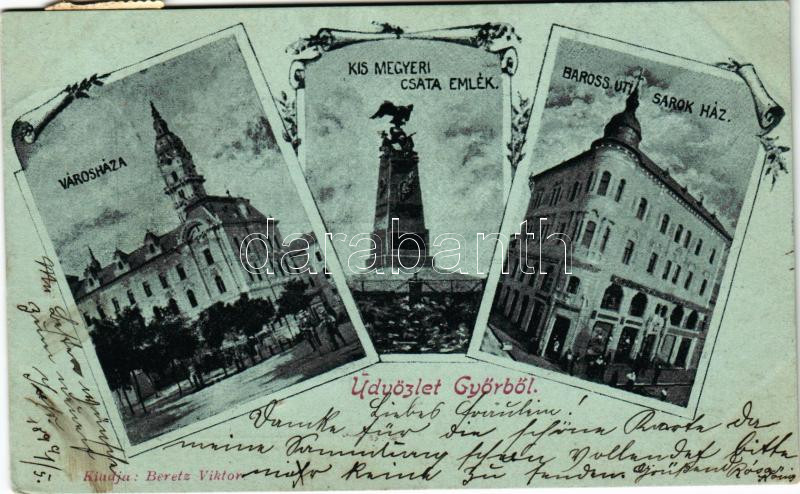 VÁROSHÁZA
KIS MEGYERI
CSATA EMLÉK.
BAROSS UTI SAROK HÁZ.
darabanth
Üdvözlet Győrből.
Liebes Fräulein!
Danke für die schöne Karte da
meine Sammlung schon vollendet bitte
mehr keine zu senden. Grüßend Rosa
König
Kiadja: Beretz Viktor